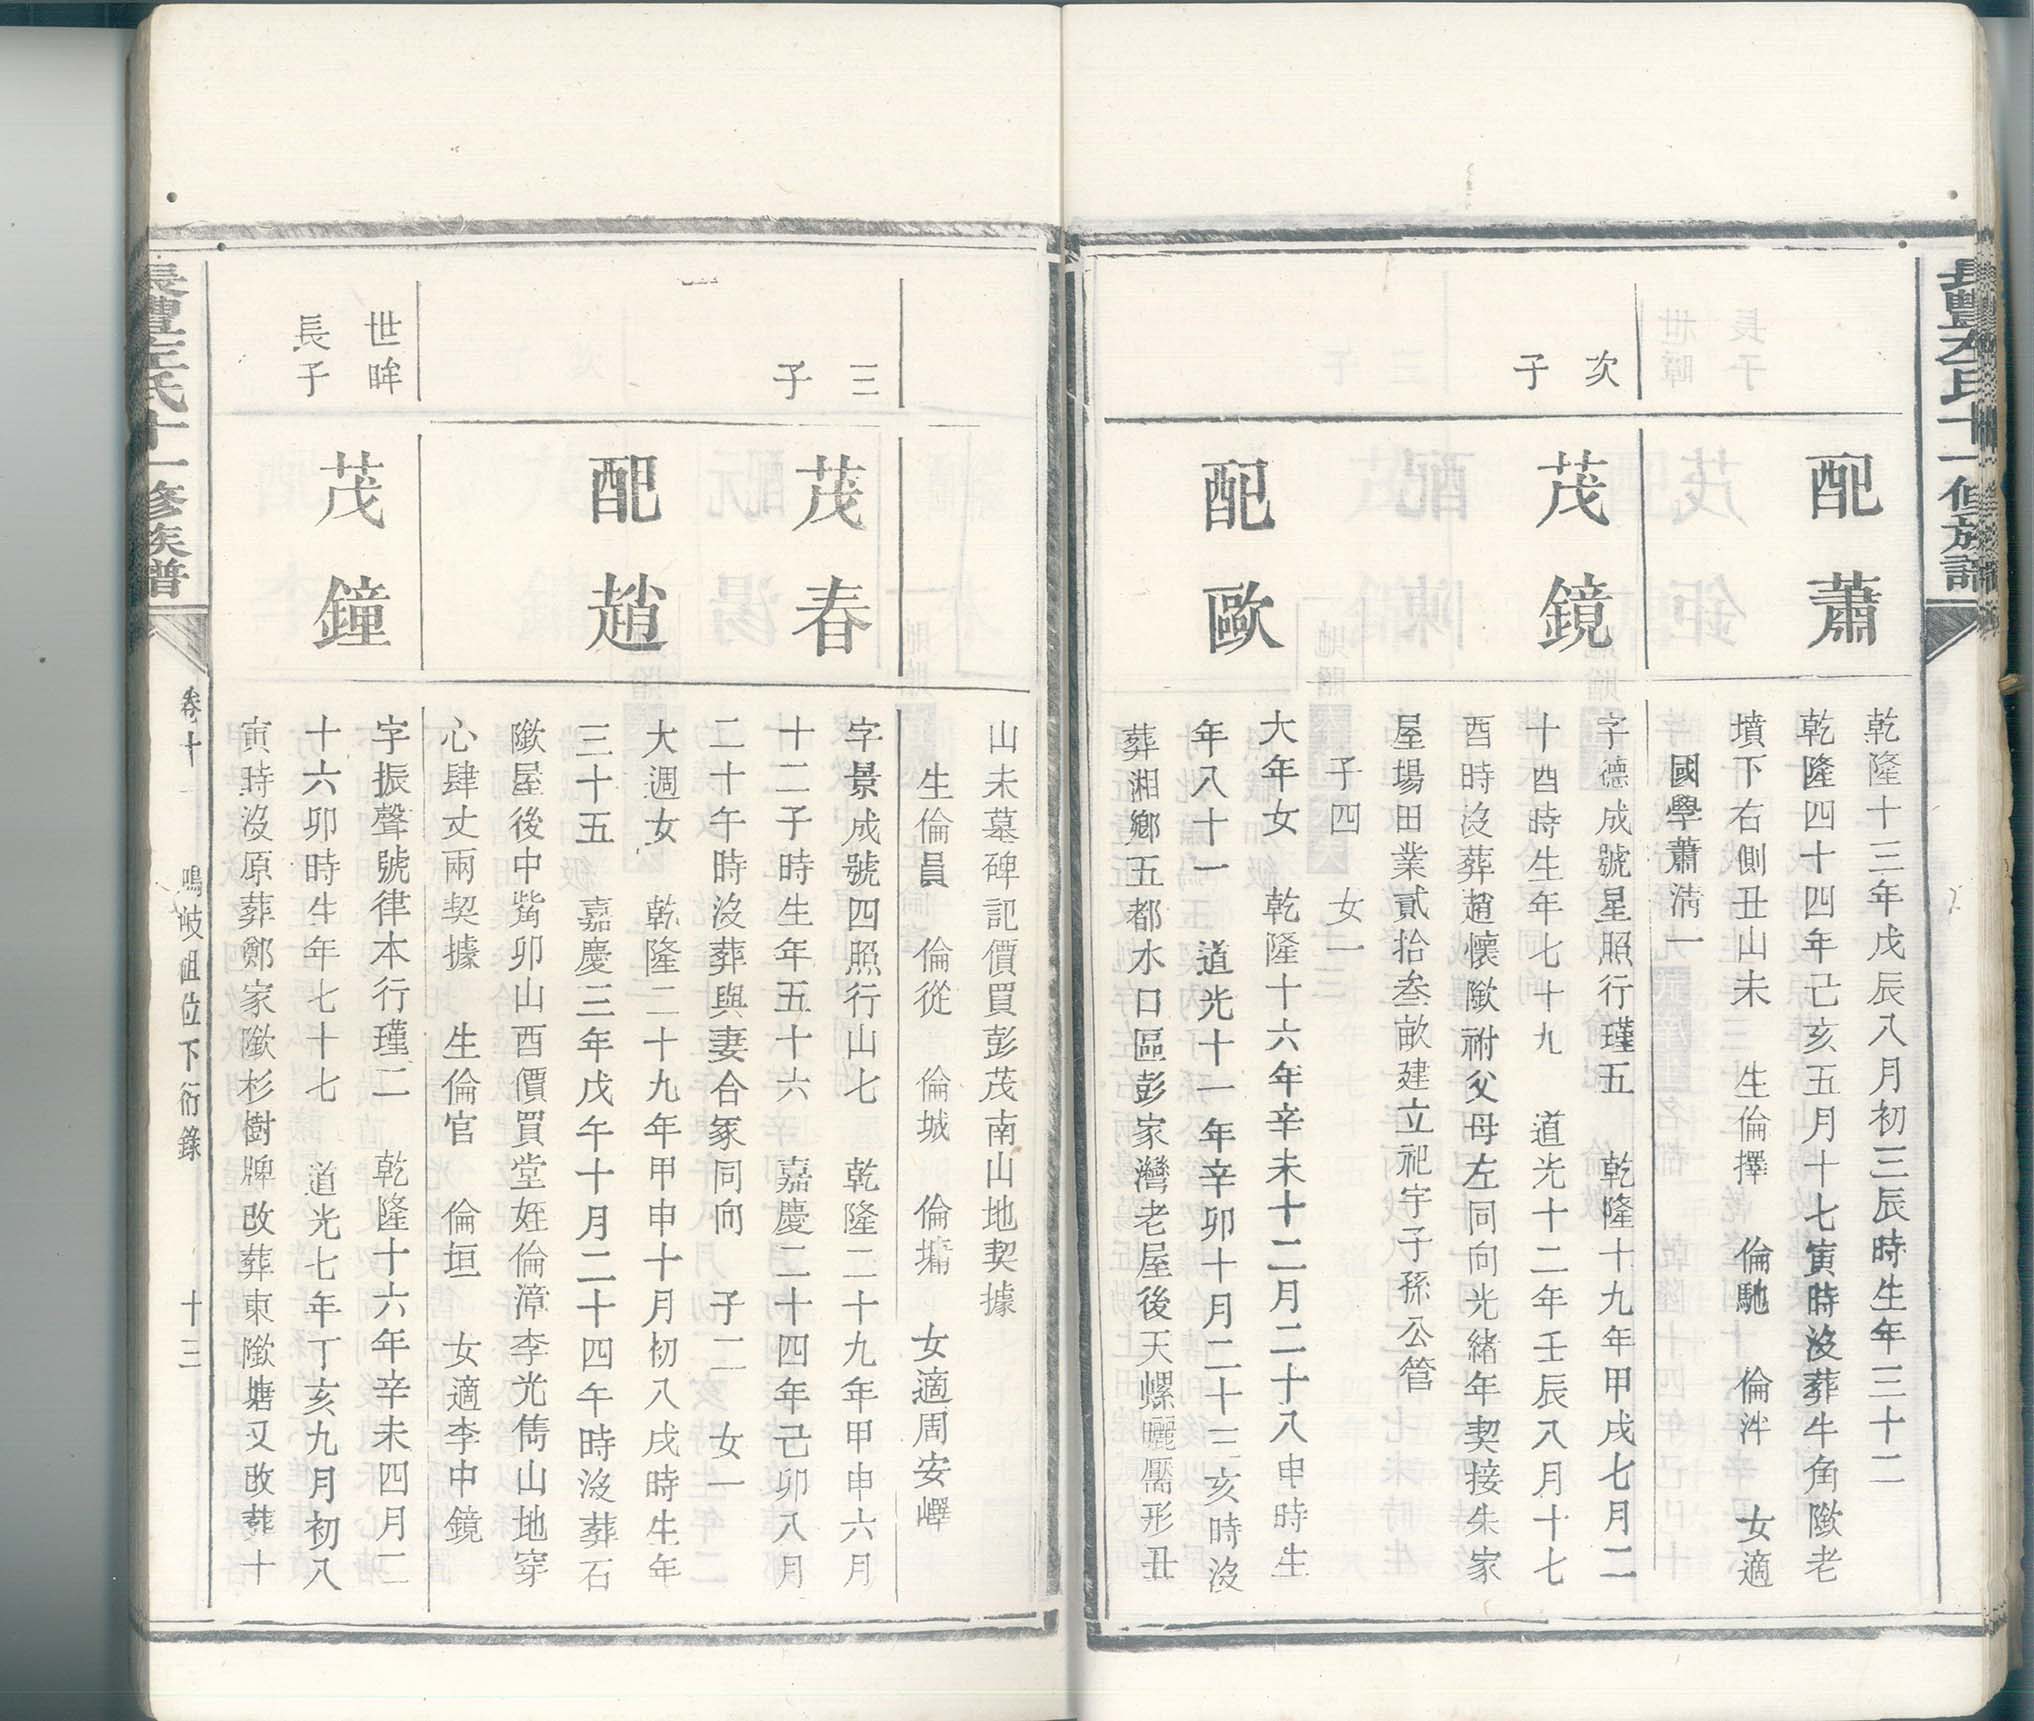 長豐左氏十一修族譜
配蕭
乾隆十三年戊辰八月初三辰時生年三十二
乾隆四十四年己亥五月十七寅時沒葬牛角㘰老
墳下右側丑山未　生倫擇　倫馳　倫泮　女適
國學蕭淸一
次子
茂鏡
字德成號星照行瑾五　乾隆十九年甲戌七月二
十酉時生年七十九　道光十二年壬辰八月十七
酉時沒葬趙懷㘰祔父母左同向光緒年契接朱家
屋場田業貳拾叁畝建立祀宇子孫公管
子四　女一
配歐
大年女　乾隆十六年辛未十二月二十八申時生
年八十一　道光十一年辛卯十月二十三亥時沒
葬湘鄉五都水口區彭家灣老屋後天螺曬靨形丑
山未墓碑記價買彭茂南山地契據
生倫員　倫從　倫城　倫墉　女適周安嶧
三子
茂春
字景成號四照行山七　乾隆二十九年甲申六月
十二子時生年五十六　嘉慶二十四年己卯八月
二十午時沒葬與妻合冢同向　子二　女一
配趙
大週女　乾隆二十九年甲申十月初八戌時生年
三十五　嘉慶三年戊午十月二十四午時沒葬石
㘰屋後中觜卯山酉價買堂姪倫漳李光雋山地穿
心肆丈兩契據　生倫官　倫垣　女適李中鏡
世眸
長子
茂鐘
字振聲號律本行瑾二　乾隆十六年辛未四月二
十六卯時生年七十七　道光七年丁亥九月初八
寅時沒原葬鄭家㘰杉樹牌改葬東㘰塘又改葬十
長豐左氏十一修族譜
卷十一　鳴岐祖位下衍錄　十三